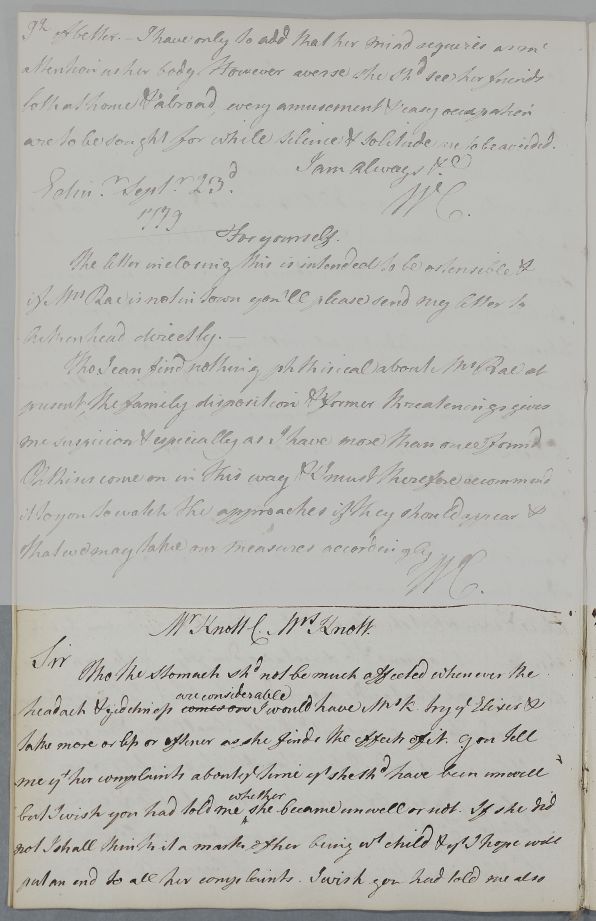 yt. of better. — I have only to add that her mind requires as much
attention as her body. However averse she shd see her friends
both at home & abroad, every amusement & easy occupation
are to be sought for while silence & solitude are to be avoided.
I am always &c
Edinr. Septr. 23d.
WC.
1779
For yourself.
The letter inclosing this is intended to be ostensible &
if Mrs Rae is not in town you'll please send my letter to
directly. —
Tho I can find nothing phthisical about Mrs Rae at
present, the family disposition & former threatenings gives
me suspicion & especially as I have more than once found
Phthisis come on in this way & I must therefore recommend
it to you to watch the approaches if they should appear &
that we may take our measures accordingly
WC.
Mr Knott C. Mrs Knott.
Sir
Tho the stomach shd not be much affected whenever the
are considerable
headach & giddiness comes on I would have Mrs K try ye Elixir &
take more or less or oftener as she finds the effects of it. You tell
me yt her complaints about ye time yt she shd have been unwell
whether
but I wish you had told me she became unwell or not. If she did
not I shall think it a mark of her being wt child & yt I hope will
put an end to all her complaints. I wish you had told me also